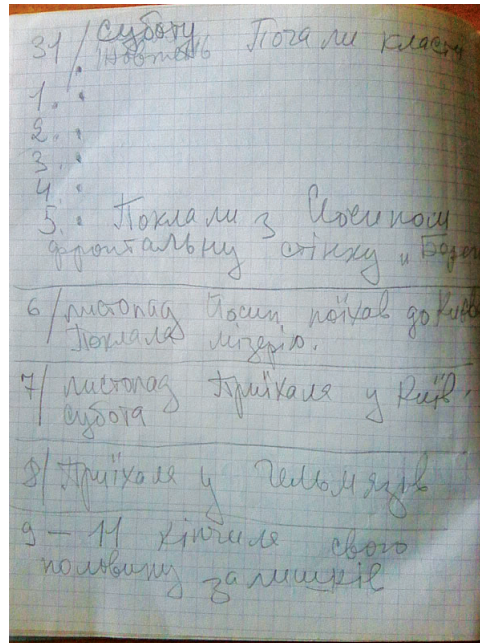 31/ суботу
жовтень Почали класти
1.
2.
3.
4.
5. Поклали з Йосипом
фронтальну стінку и
6/ листопад Йосип поїхав до Києва
Поклала мізерію.
7/ листопад Приїхаля у Київ.
субота
8/ Приїхаля у Гельмязів
9 – 11 кінчиля свого
половину залишків